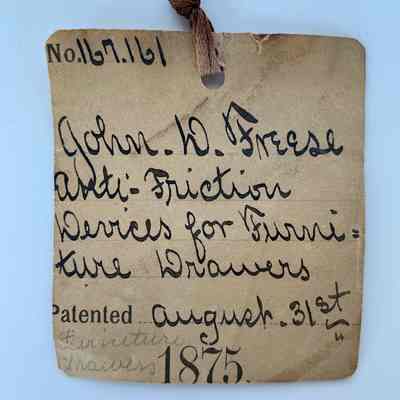 No. 167.161
John. W. Freese
Anti-Friction
Devices for Furni=
ture Drawers
Patented August. 31st
Furniture
Drawers 1875.